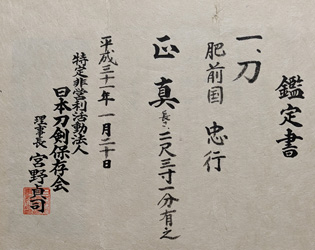 鑑定書
一、刀
肥前国 忠行
正真 長さ、二尺三寸一分有之
平成三十一年 一月二十日
特定非営利活動法人
日本刀剣保存会
理事長 宮野貞司